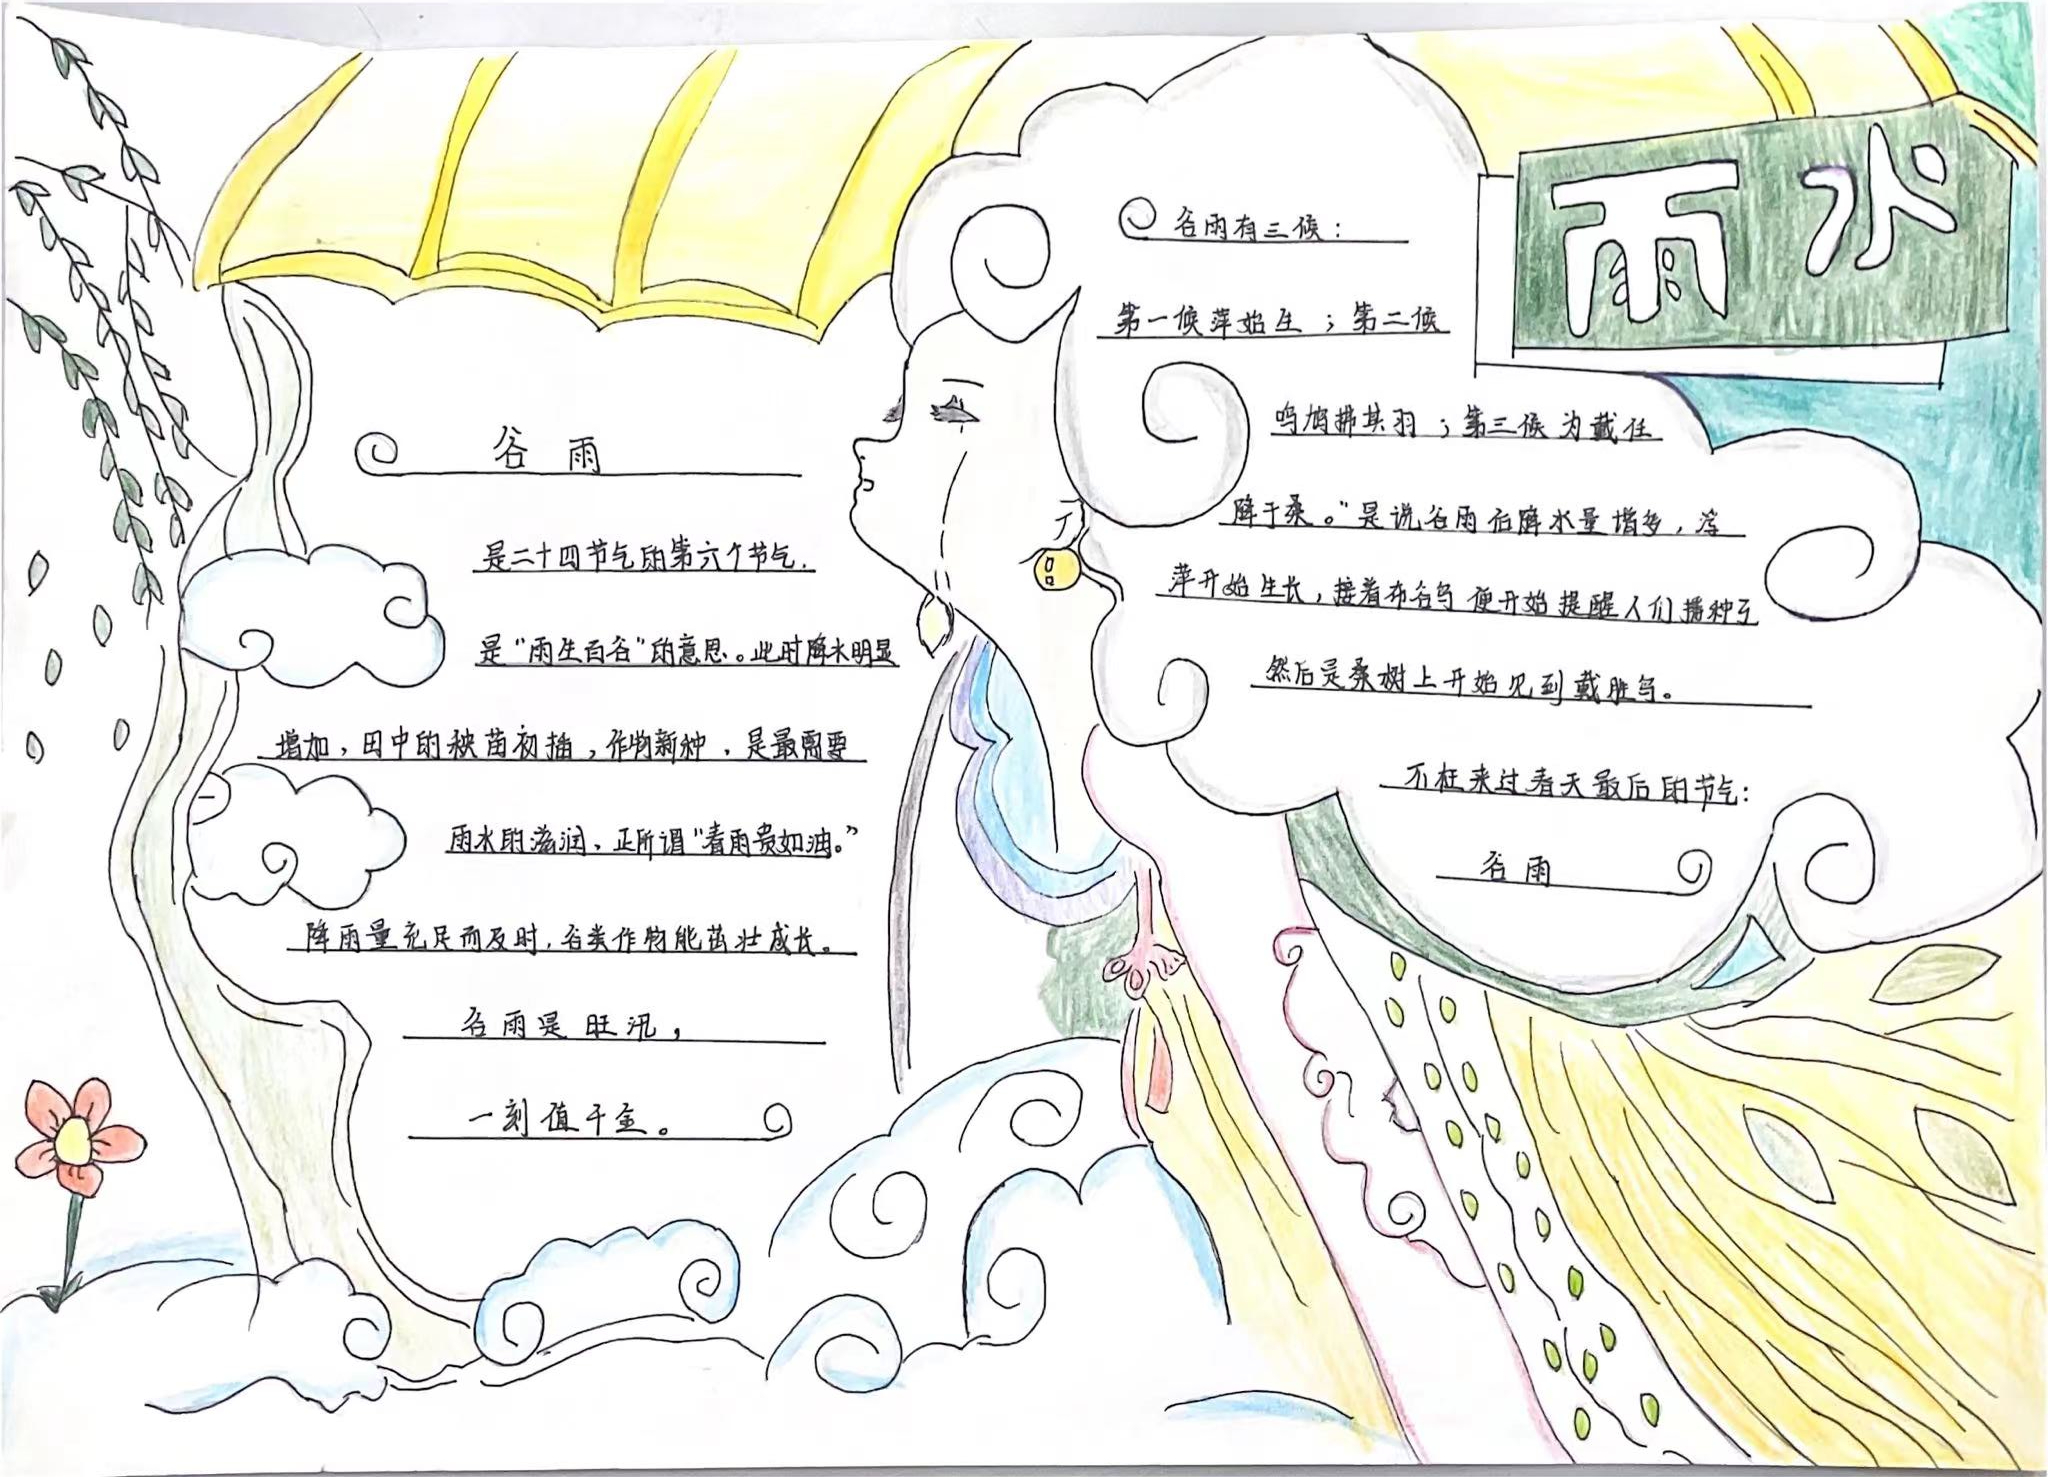 雨水
谷雨
是二十四节气的第六个节气.
是“雨生百谷”的意思。此时降水明显
增加,田中的秧苗初插,作物新种,是最需要
雨水的滋润,正所谓“春雨贵如油。”
降雨量充足而及时,谷类作物能茁壮成长。
谷雨是旺汛,
一刻值千金。
谷雨有三候:
第一候萍始生;第二候
鸣鸠拂其羽;第三候为戴任
降于桑。”是说谷雨后降水量增多,浮
萍开始生长,接着布谷鸟便开始提醒人们播种了
然后是桑树上开始见到戴胜鸟。
不枉来过春天最后的节气:
谷雨